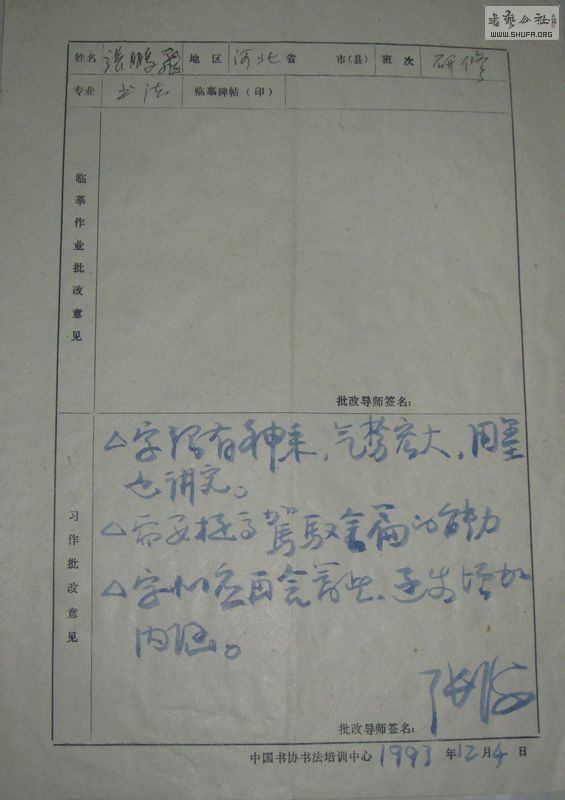 書藝公社
WWW.SHUFA.ORG
姓名 張鵬飛 地区 河北 省 市(县) 班次 研修
专业 书法 临摹碑帖(印)
临摹作业批改意见
批改导师签名:
习作批改意见
△字很有神采,气势宏大,用墨
也讲究。
△需要提高驾驭全篇的能力
△字 应再含蓄些,
内涵。
批改导师签名: 张海
中国书协书法培训中心 1993 年 12 月 4 日